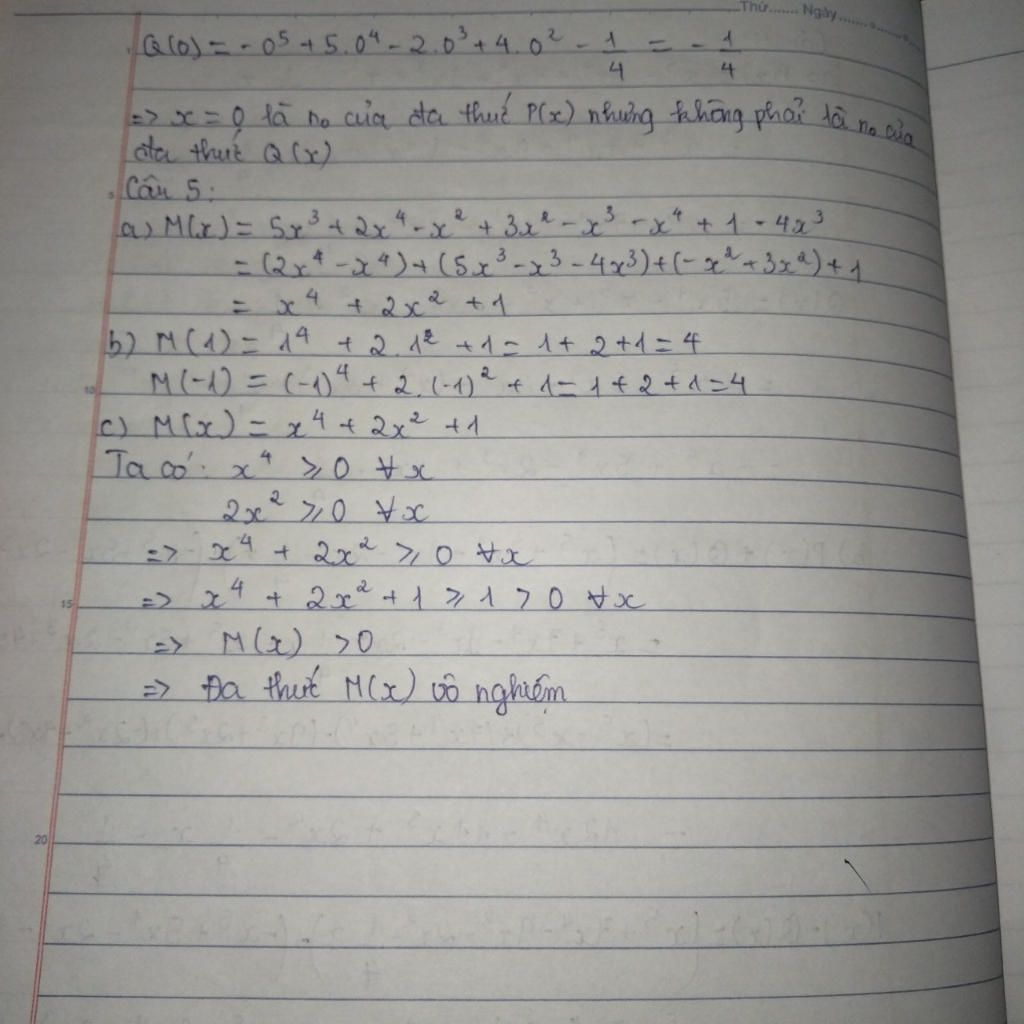 Thứ....... Ngày.......
Q(0) = - 0⁵ + 5.0⁴ - 2.0³ + 4.0² - 1/4 = - 1/4
=> x = 0 là n₀ của đa thức P(x) nhưng không phải là n₀ của
đa thức Q(x)
Câu 5:
a) M(x) = 5x³ + 2x⁴ - x² + 3x² - x³ - x⁴ + 1 - 4x³
= (2x⁴ - x⁴) + (5x³ - x³ - 4x³) + (- x² + 3x²) + 1
= x⁴ + 2x² + 1
b) M(1) = 1⁴ + 2.1² + 1 = 1 + 2 + 1 = 4
M(-1) = (-1)⁴ + 2.(-1)² + 1 = 1 + 2 + 1 = 4
c) M(x) = x⁴ + 2x² + 1
Ta có: x⁴ ⩾ 0 ∀x
2x² ⩾ 0 ∀x
=> x⁴ + 2x² ⩾ 0 ∀x
=> x⁴ + 2x² + 1 ⩾ 1 > 0 ∀x
15
=> M(x) > 0
=> Đa thức M(x) vô nghiệm
20